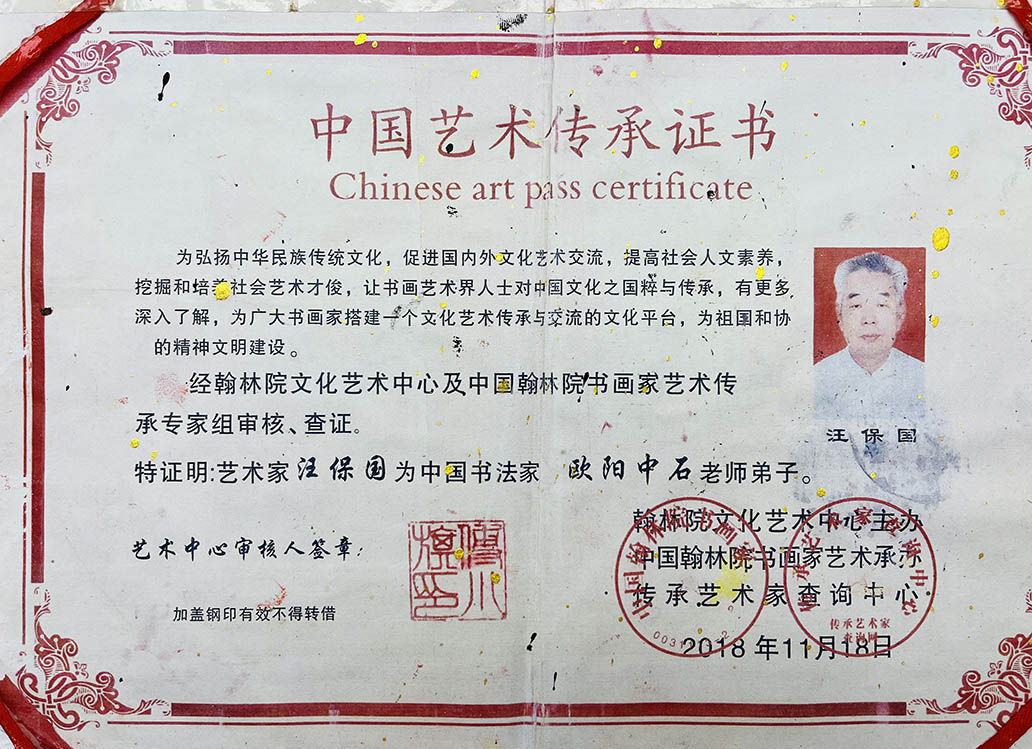 中国艺术传承证书
Chinese art pass certificate
为弘扬中华民族传统文化，促进国内外文化艺术交流，提高社会人文素养，
挖掘和培养社会艺术才俊，让书画艺术界人士对中国文化之国粹与传承，有更多
深入了解，为广大书画家搭建一个文化艺术传承与交流的文化平台，为祖国和协
的精神文明建设。
经翰林院文化艺术中心及中国翰林院书画家艺术传
承专家组审核、查证。
汪保国
特证明:艺术家汪保国为中国书法家 欧阳中石老师弟子。
翰林院文化艺术中心主办
艺术中心审核人签章：
中国翰林院书画家艺术承办
传承艺术家查询中心
加盖钢印有效不得转借
传承艺术家
查询网
2018年11月18日